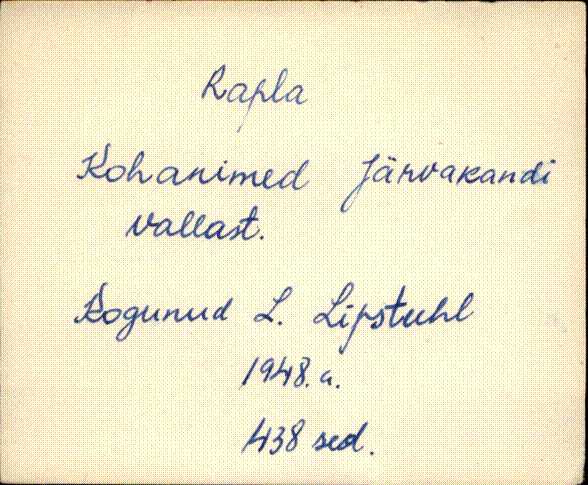 Rapla
Kohanimed Järvakandi
vallast.
Kogunud L. Lipstuhl
1948. a.
438 sed.